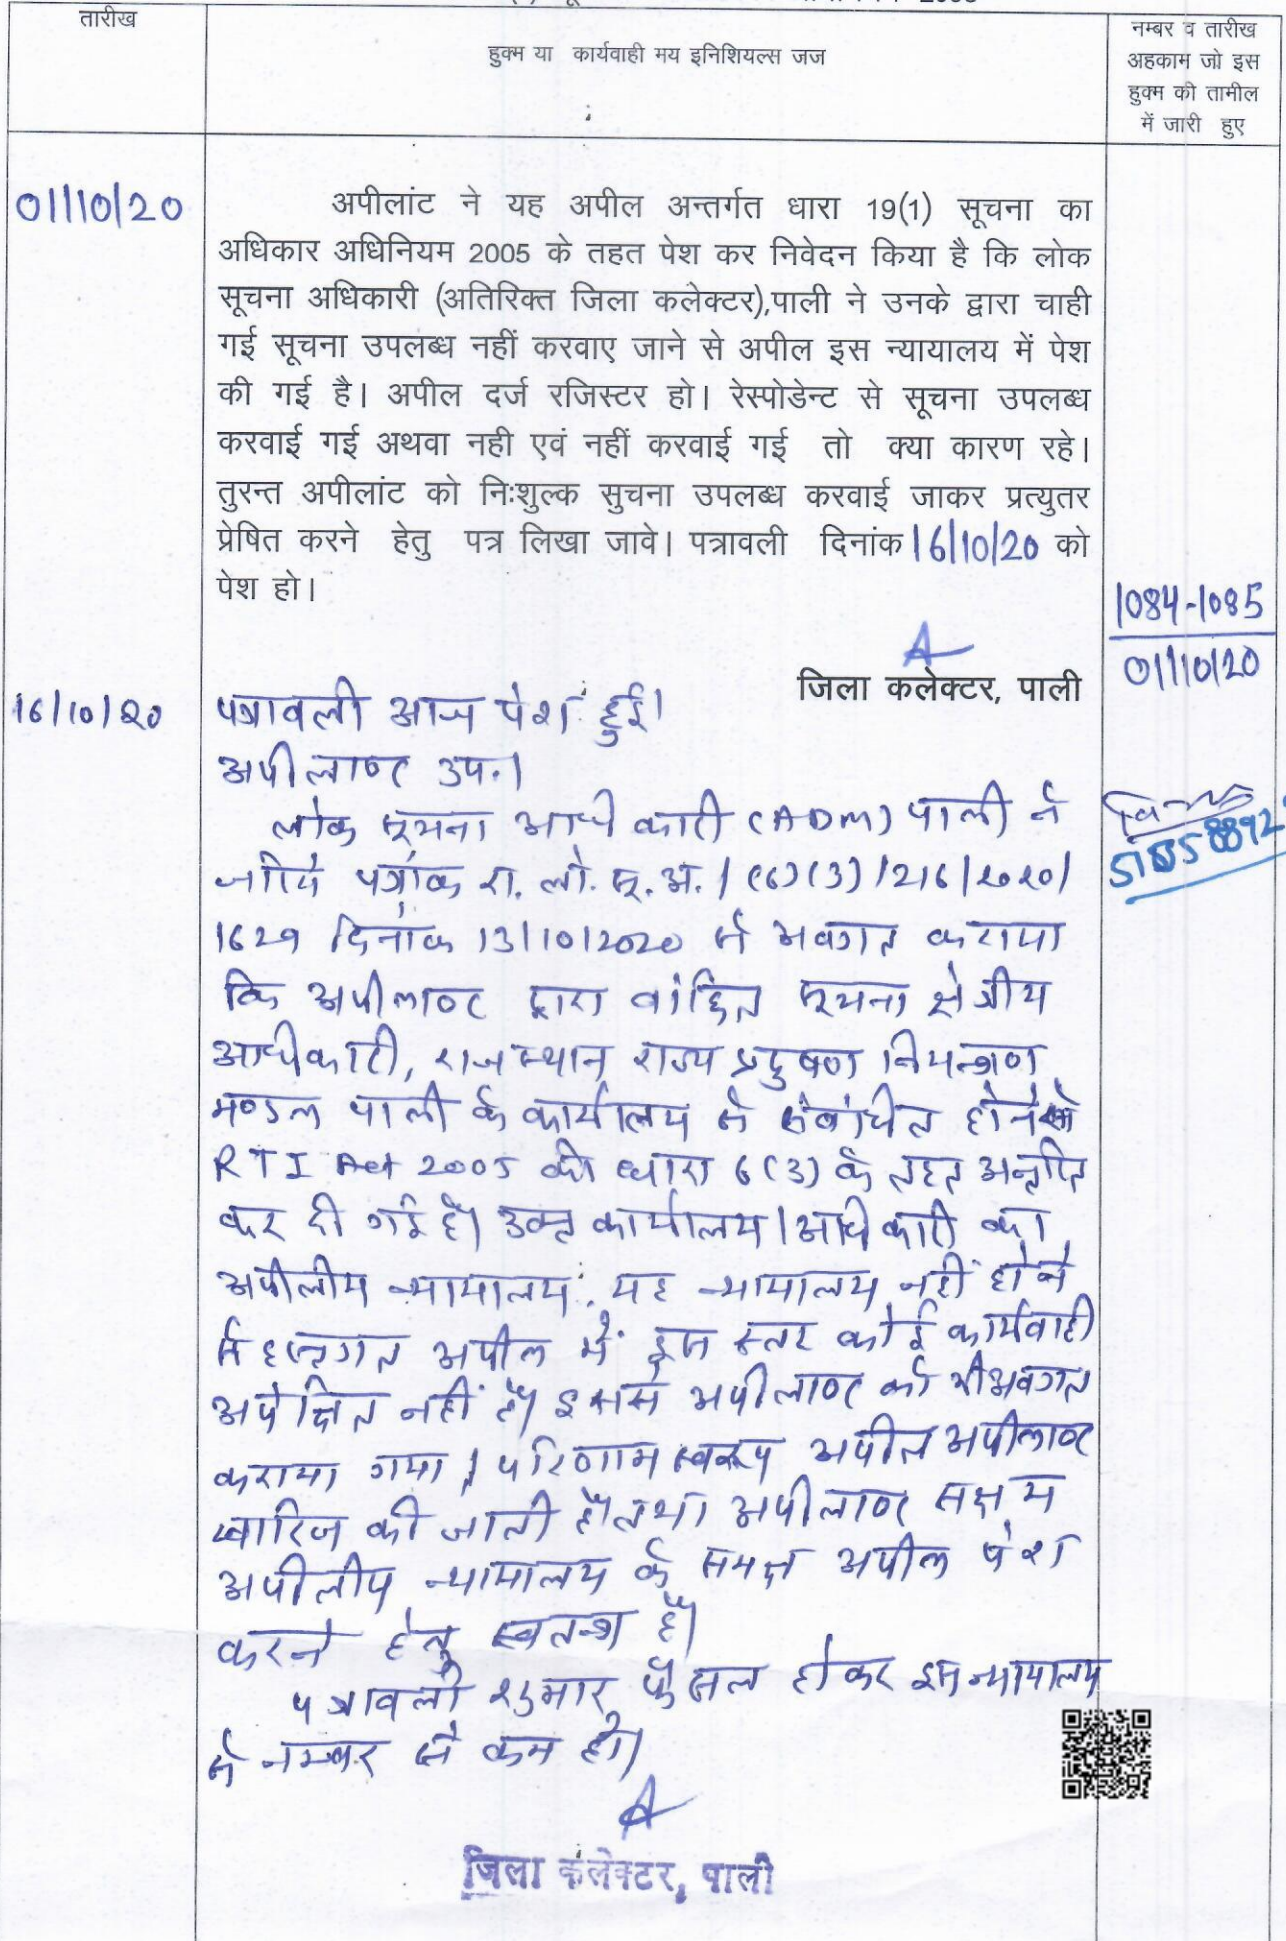 तारीख
हुक्म या कार्यवाही मय इनिशियल्स जज
नम्बर व तारीख
अहकाम जो इस
हुक्म की तामील
में जारी हुए
01/10/20
अपीलांट ने यह अपील अन्तर्गत धारा 19(1) सूचना का
अधिकार अधिनियम 2005 के तहत पेश कर निवेदन किया है कि लोक
सूचना अधिकारी (अतिरिक्त जिला कलेक्टर),पाली ने उनके द्वारा चाही
गई सूचना उपलब्ध नहीं करवाए जाने से अपील इस न्यायालय में पेश
की गई है। अपील दर्ज रजिस्टर हो। रेस्पोडेन्ट से सूचना उपलब्ध
करवाई गई अथवा नही एवं नहीं करवाई गई तो क्या कारण रहे।
तुरन्त अपीलांट को निःशुल्क सुचना उपलब्ध करवाई जाकर प्रत्युतर
प्रेषित करने हेतु पत्र लिखा जावे। पत्रावली दिनांक 16/10/20 को
पेश हो।
1084-1085
01/10/20
जिला कलेक्टर, पाली
16/10/20
पत्रावली आज पेश हुई।
अपीलाण्ट उप.।
लोक सूचना अधिकारी (ADM) पाली ने
जरिये पत्रांक रा. लो. सू. अ. / (6)(3) / 216 / 2020 /
1629 दिनांक 13/10/2020 से अवगत कराया
कि अपीलाण्ट द्वारा वांछित सूचना क्षेत्रीय
अधिकारी, राजस्थान राज्य प्रदुषण नियन्त्रण
मण्डल पाली के कार्यालय से संबंधित होने से
RTI Act 2005 की धारा 6(3) के तहत अन्तरित
कर दी गई है। उक्त कार्यालय/अधिकारी का
अपीलीय न्यायालय यह न्यायालय नहीं होने
से हस्तगत अपील में इस स्तर कोई कार्यवाही
अपेक्षित नहीं है। इससे अपीलाण्ट को भी अवगत
कराया गया। परिणाम स्वरूप अपील अपीलाण्ट
खारिज की जाती है तथा अपीलाण्ट सक्षम
अपीलीय न्यायालय के समक्ष अपील पेश
करने हेतु स्वतन्त्र है।
पत्रावली शुमार फैसल होकर इस न्यायालय
से नम्बर से कम हो।
जिला कलेक्टर, पाली